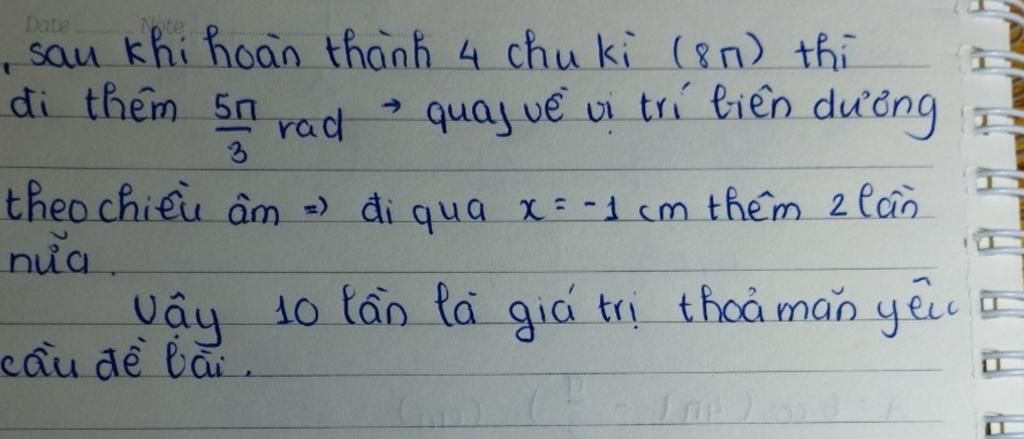 Date Note
, sau khi hoàn thành 4 chu kì (8π) thì
đi thêm 5π/3 rad → quay về vị trí biên dương
theo chiều âm => đi qua x = -1 cm thêm 2 lần
nữa.
Vậy 10 lần là giá trị thoả mãn yêu
cầu đề bài.